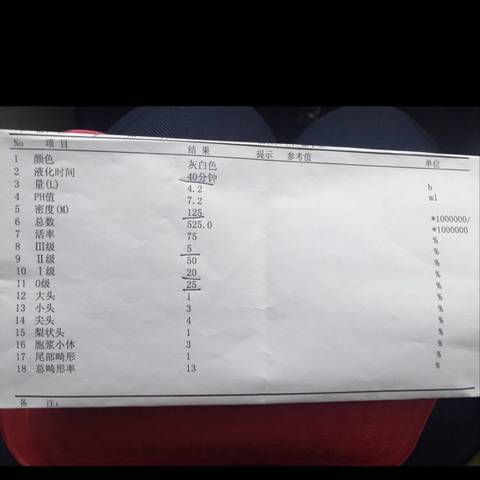 No 项 目 结 果 提示 参考值 单位
1 颜色 灰白色
2 液化时间 40分钟 h
3 量(L) 4.2 ml
4 PH值 7.2
5 密度(M) 125 *1000000/
6 总数 525.0 *1000000
7 活率 75 %
8 Ⅲ级 5 %
9 Ⅱ级 50 %
10 Ⅰ级 20 %
11 0级 25 %
12 大头 1 %
13 小头 3 %
14 尖头 4 %
15 梨状头 1 %
16 胞浆小体 3 %
17 尾部畸形 1 %
18 总畸形率 13 %
备 注: